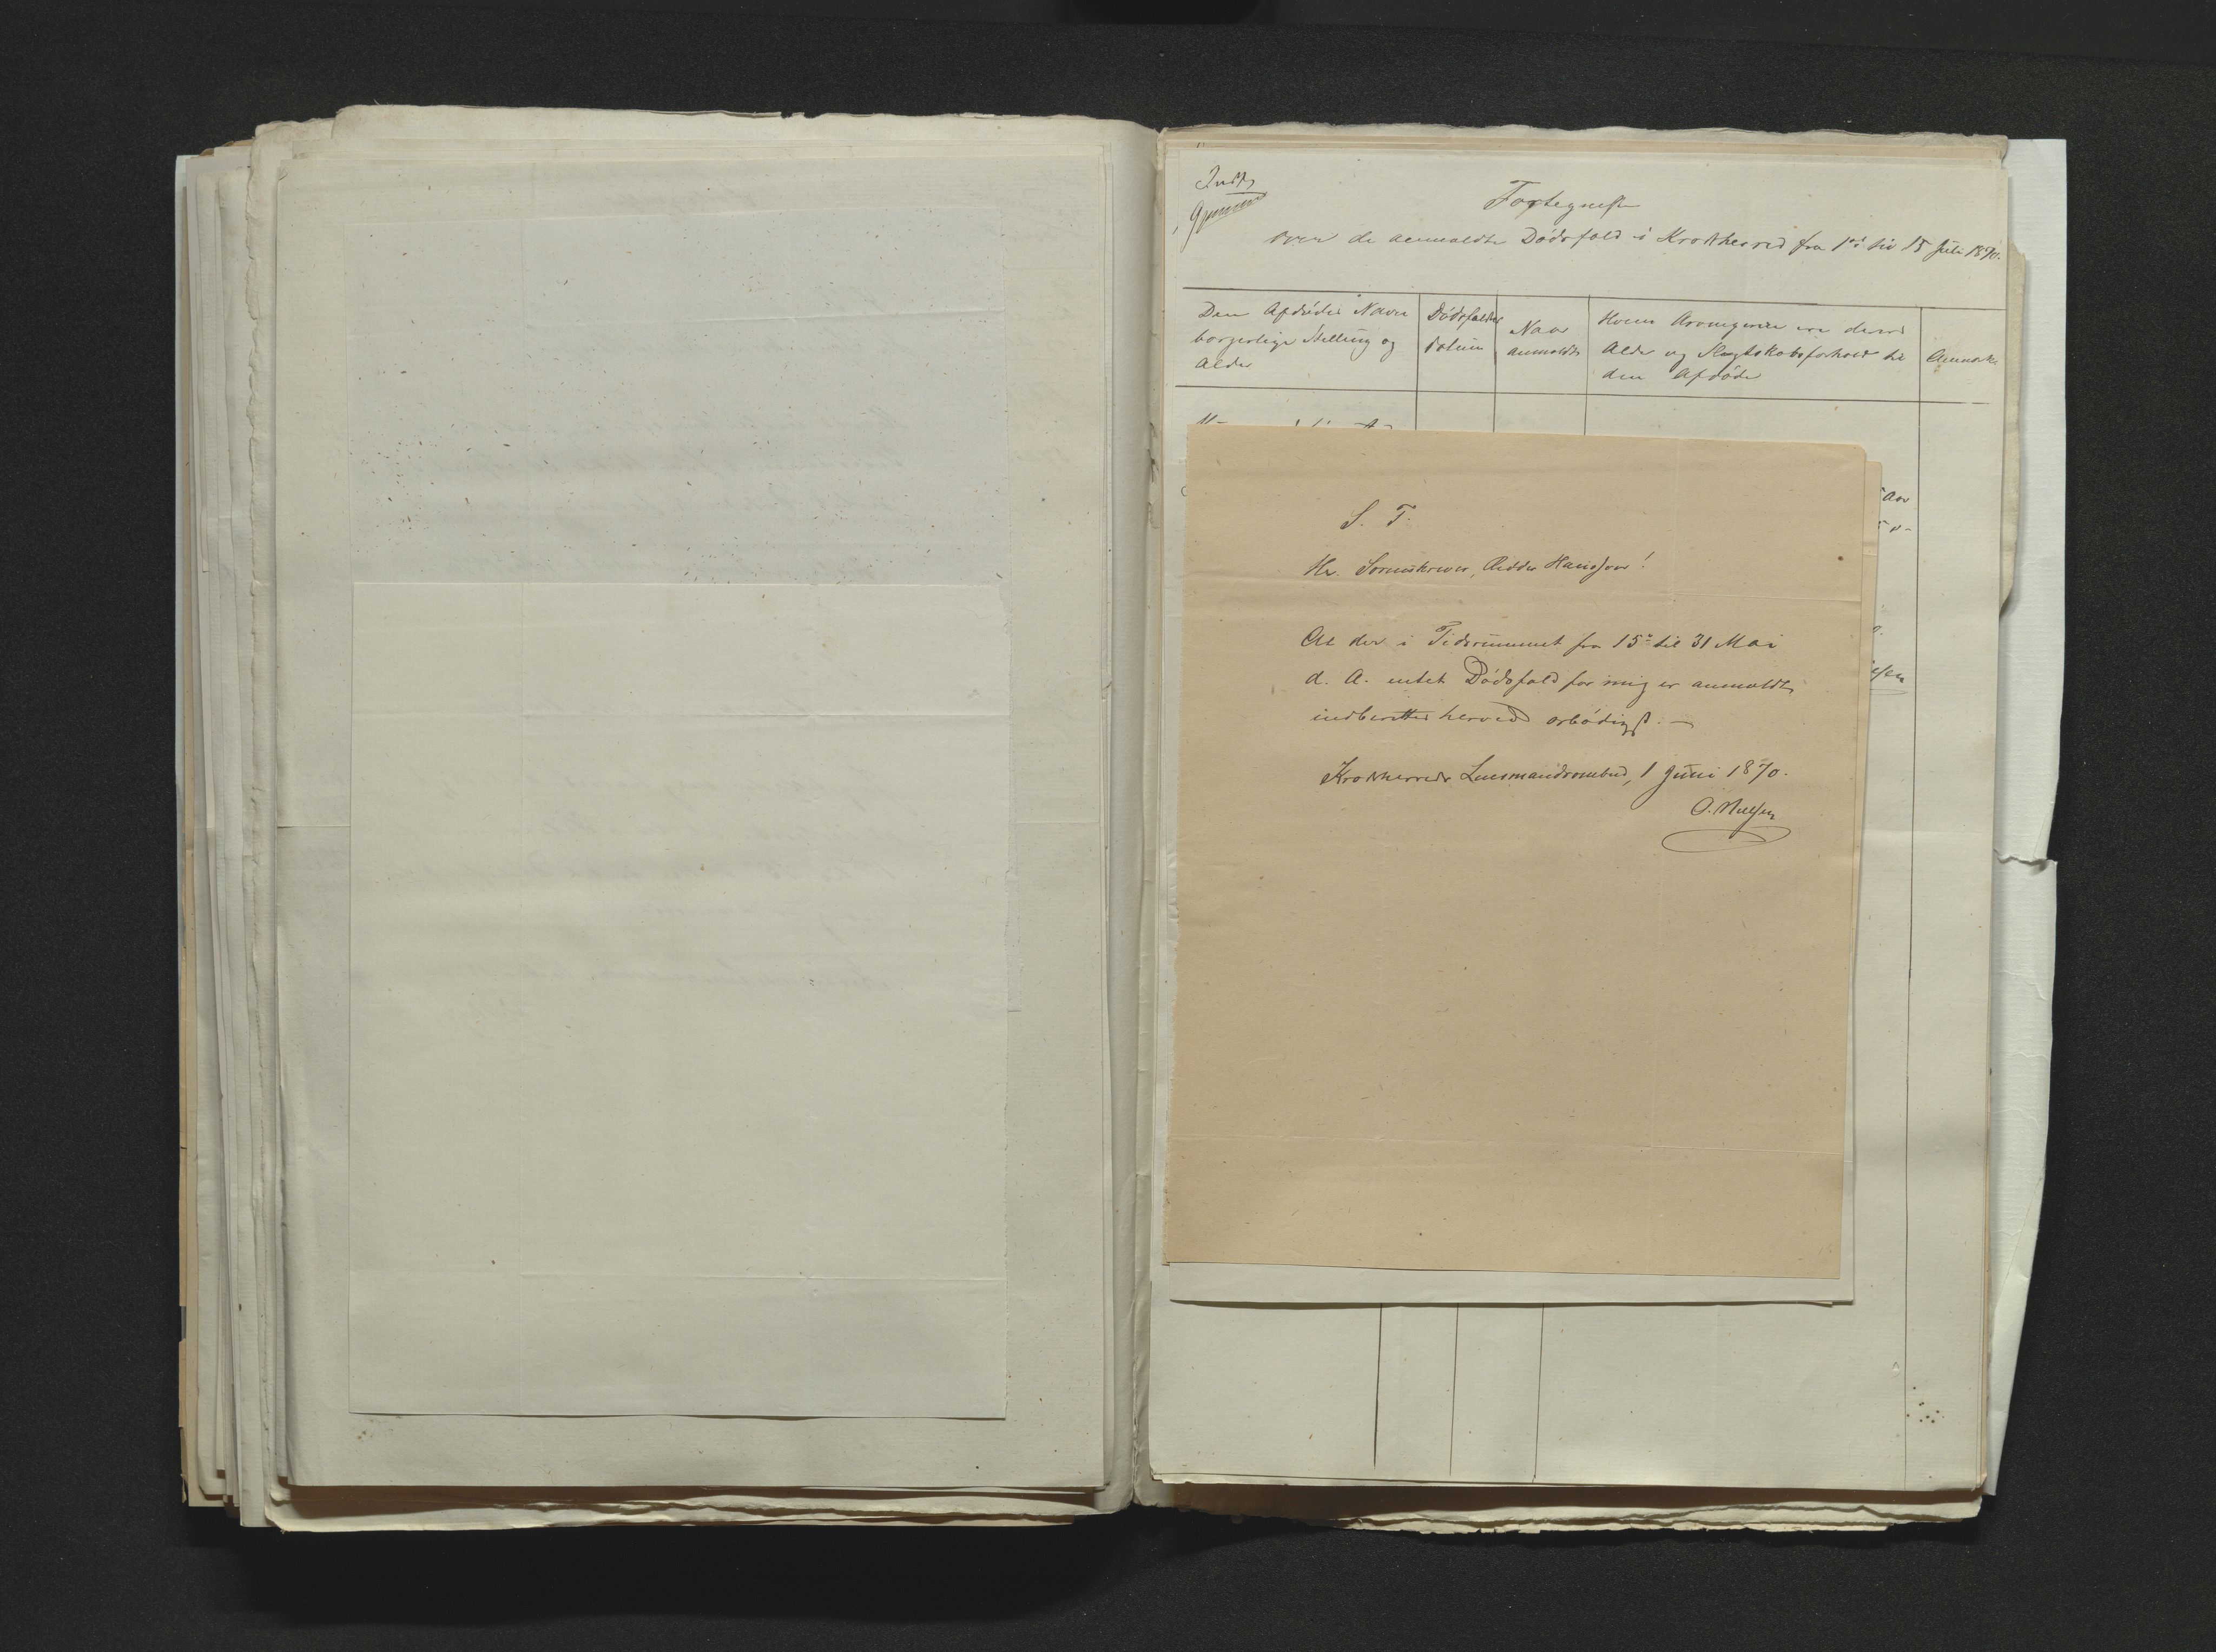 Fortegnelse
over de anmeldte Dødsfald i Krokherred fra 1ste til 15 Juli 1870.
Den Afdødes Navn
borgerlige Stilling og
Alder
Dødsfaldets
datum
Naar
anmeldt
Hvem Arvingerne ere deres
Alder og Slægtskabsforhold til
den Afdøde
Anmærk.
Aar
S. T.
Hr. Sorenskriver, Ridder Hansson!
At der i Tidsrummet fra 15de til 31 Mai
d. A. intet Dødsfald for mig er anmeldt,
indberettes herved ærbødigst. —
Krokherreds Lensmandsombud, 1 Juni 1870.
O. Nielsen